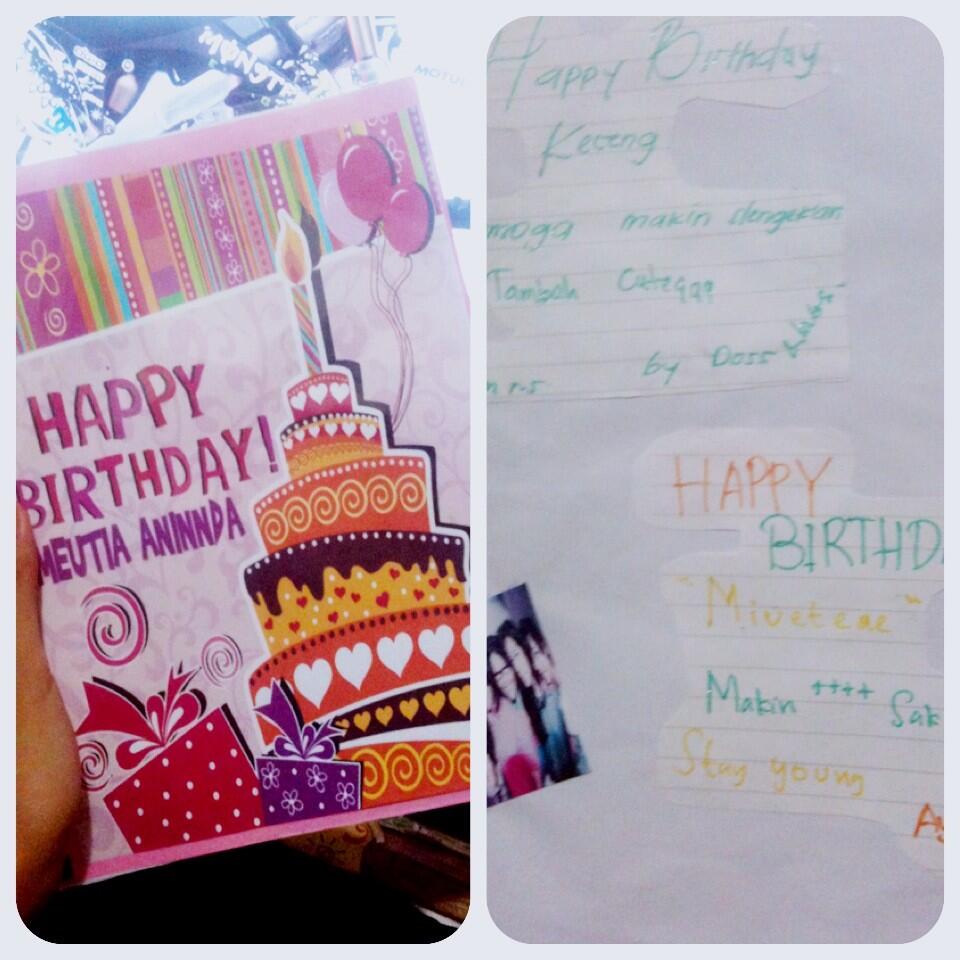 MOTUL
HAPPY
BIRTHDAY!
MEUTIA ANINNDA
Happy Birthday
Keceng
moga makin dengekan
Tambah
by Doss
HAPPY
BIRTHD
"Miveteae"
Makin ++++ Sak
Stay young